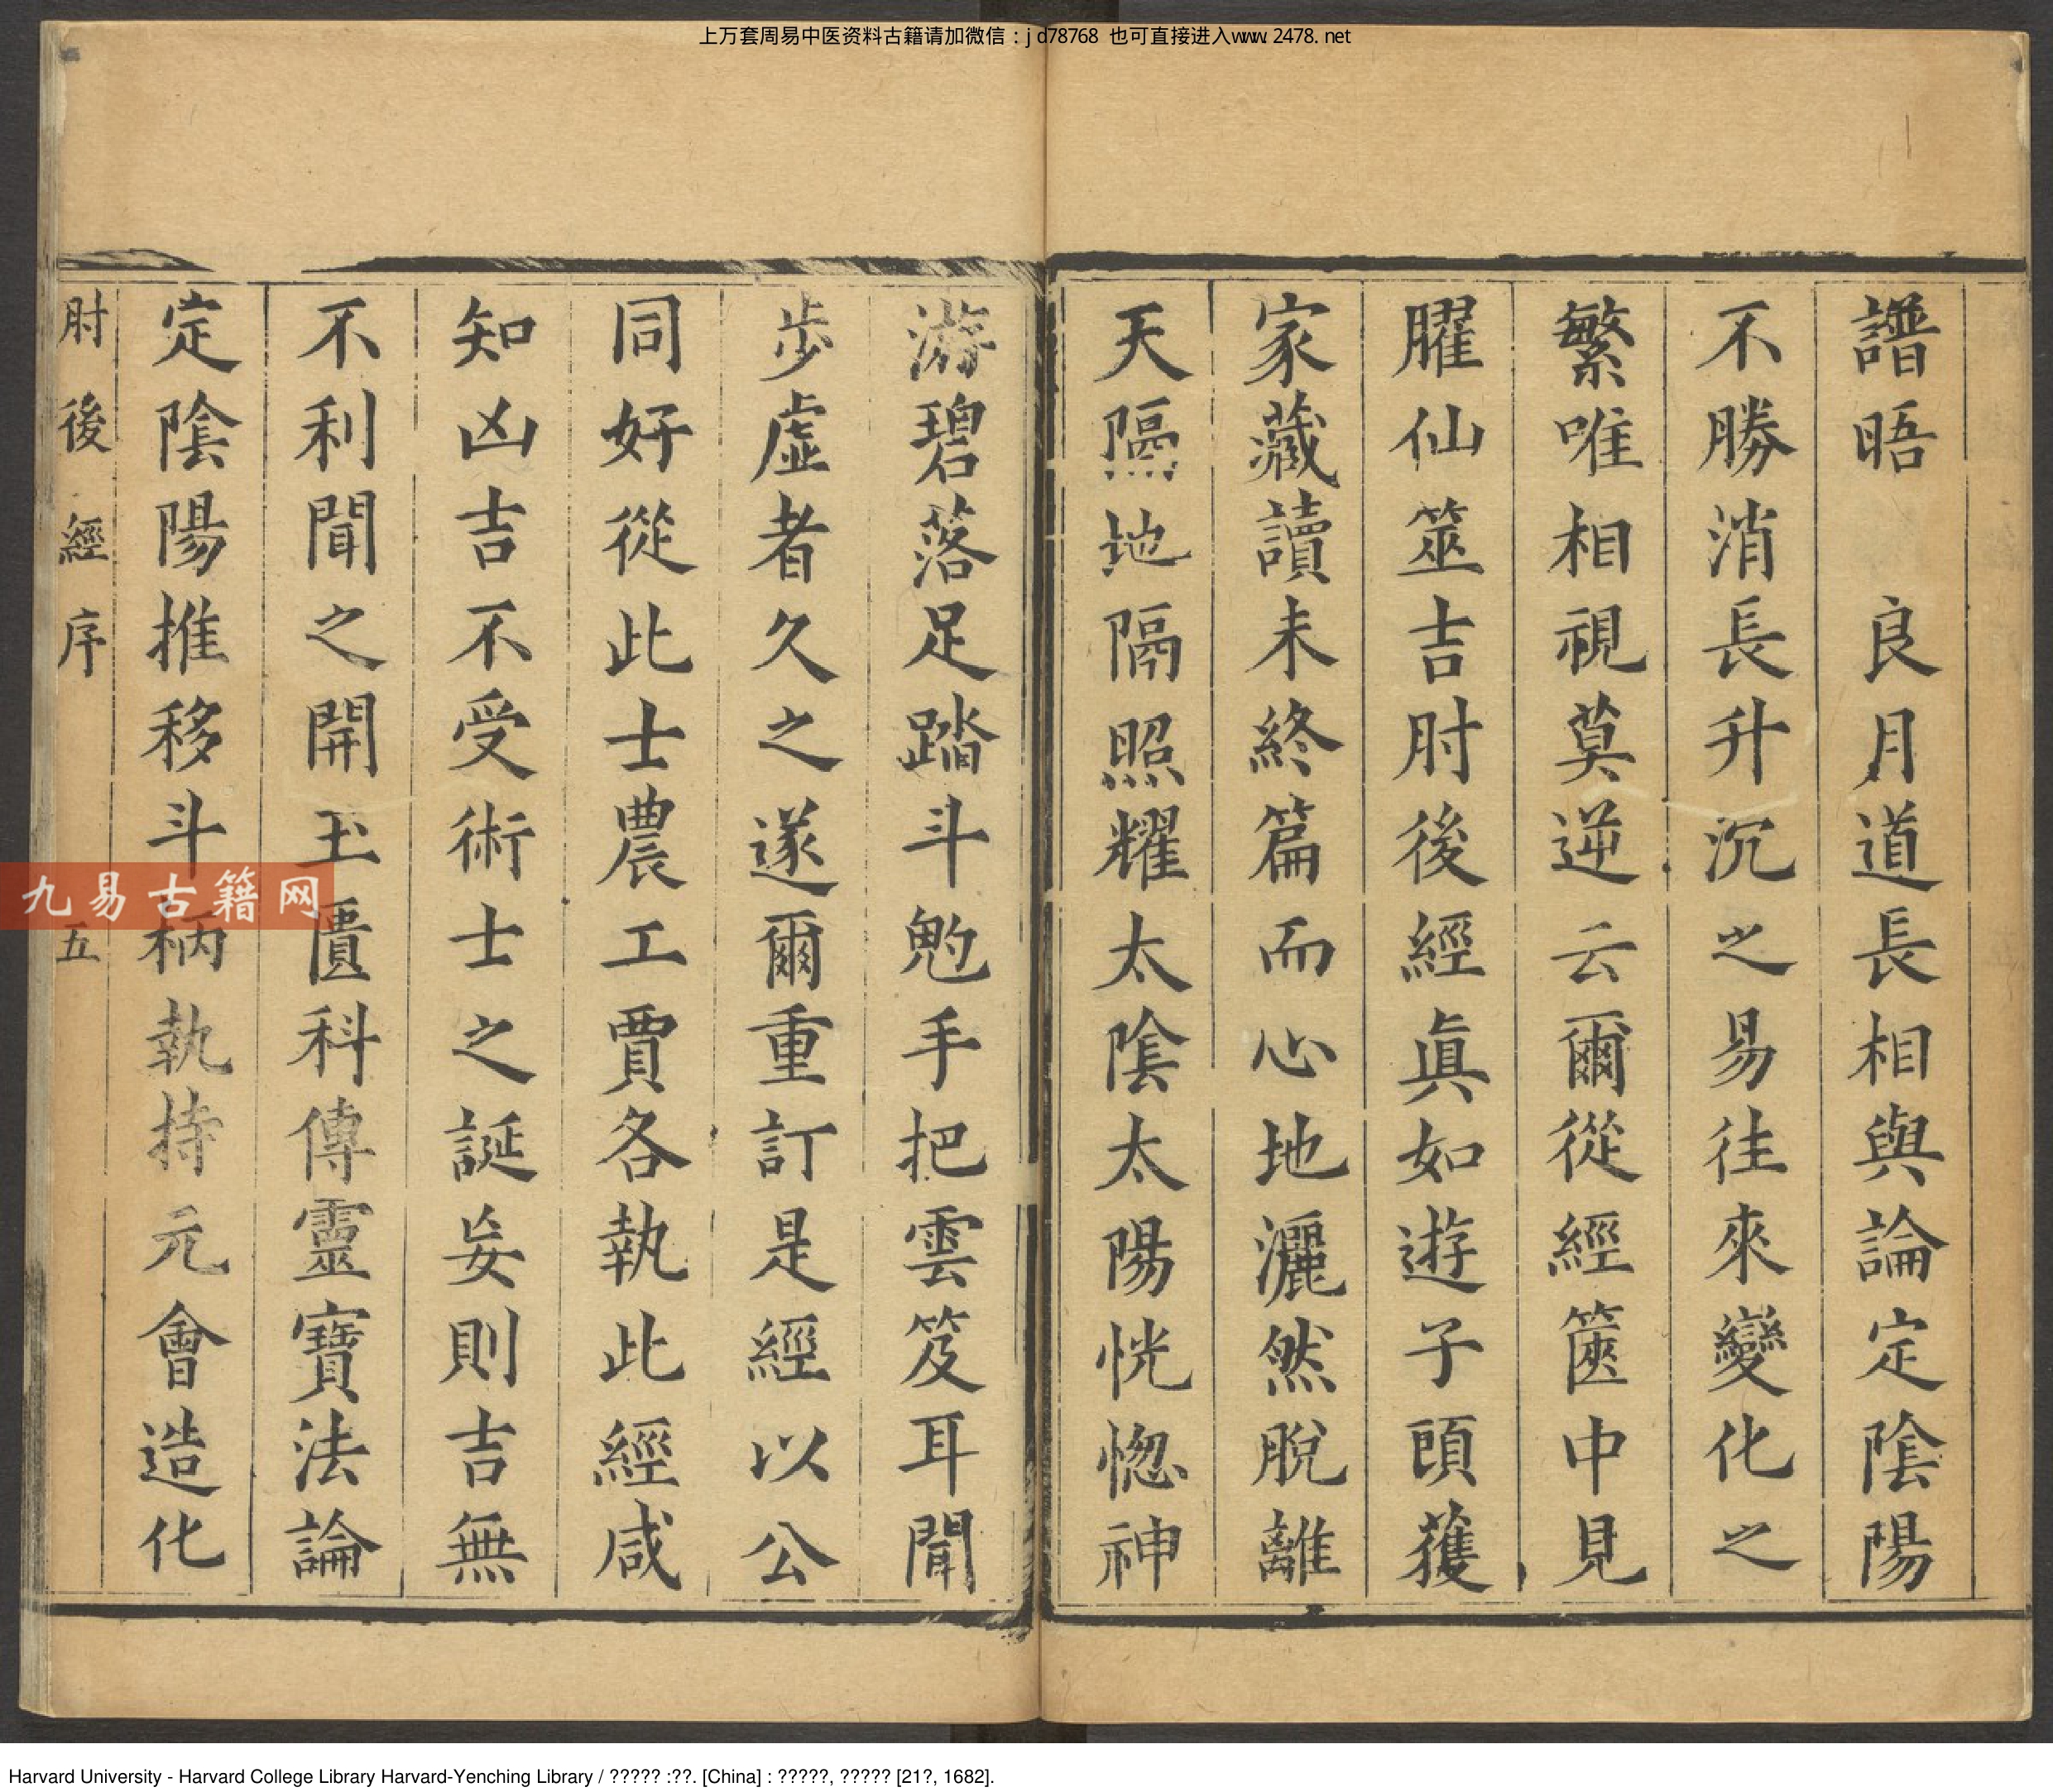 上万套周易中医资料古籍请加微信：jd78768 也可直接进入www.2478.net
譜晤 良月道長相與論定陰陽
不勝消長升沉之易徃來變化之
繁唯相視莫逆云爾從經篋中見
臞仙筮吉肘後經眞如遊子頭獲
家藏讀未終篇而心地灑然脫離
天隔地隔照耀太陰太陽恍惚神
游碧落足踏斗魁手把雲笈耳聞
步虛者久之遂爾重訂是經以公
同好從此士農工賈各執此經咸
知凶吉不受術士之誕妄則吉無
不利聞之開玉匱科傳靈寶法論
定陰陽推移斗柄執持元會造化
肘後經序 五
九易古籍网
Harvard University - Harvard College Library Harvard-Yenching Library / ????? :??. [China] : ?????, ????? [21?, 1682].